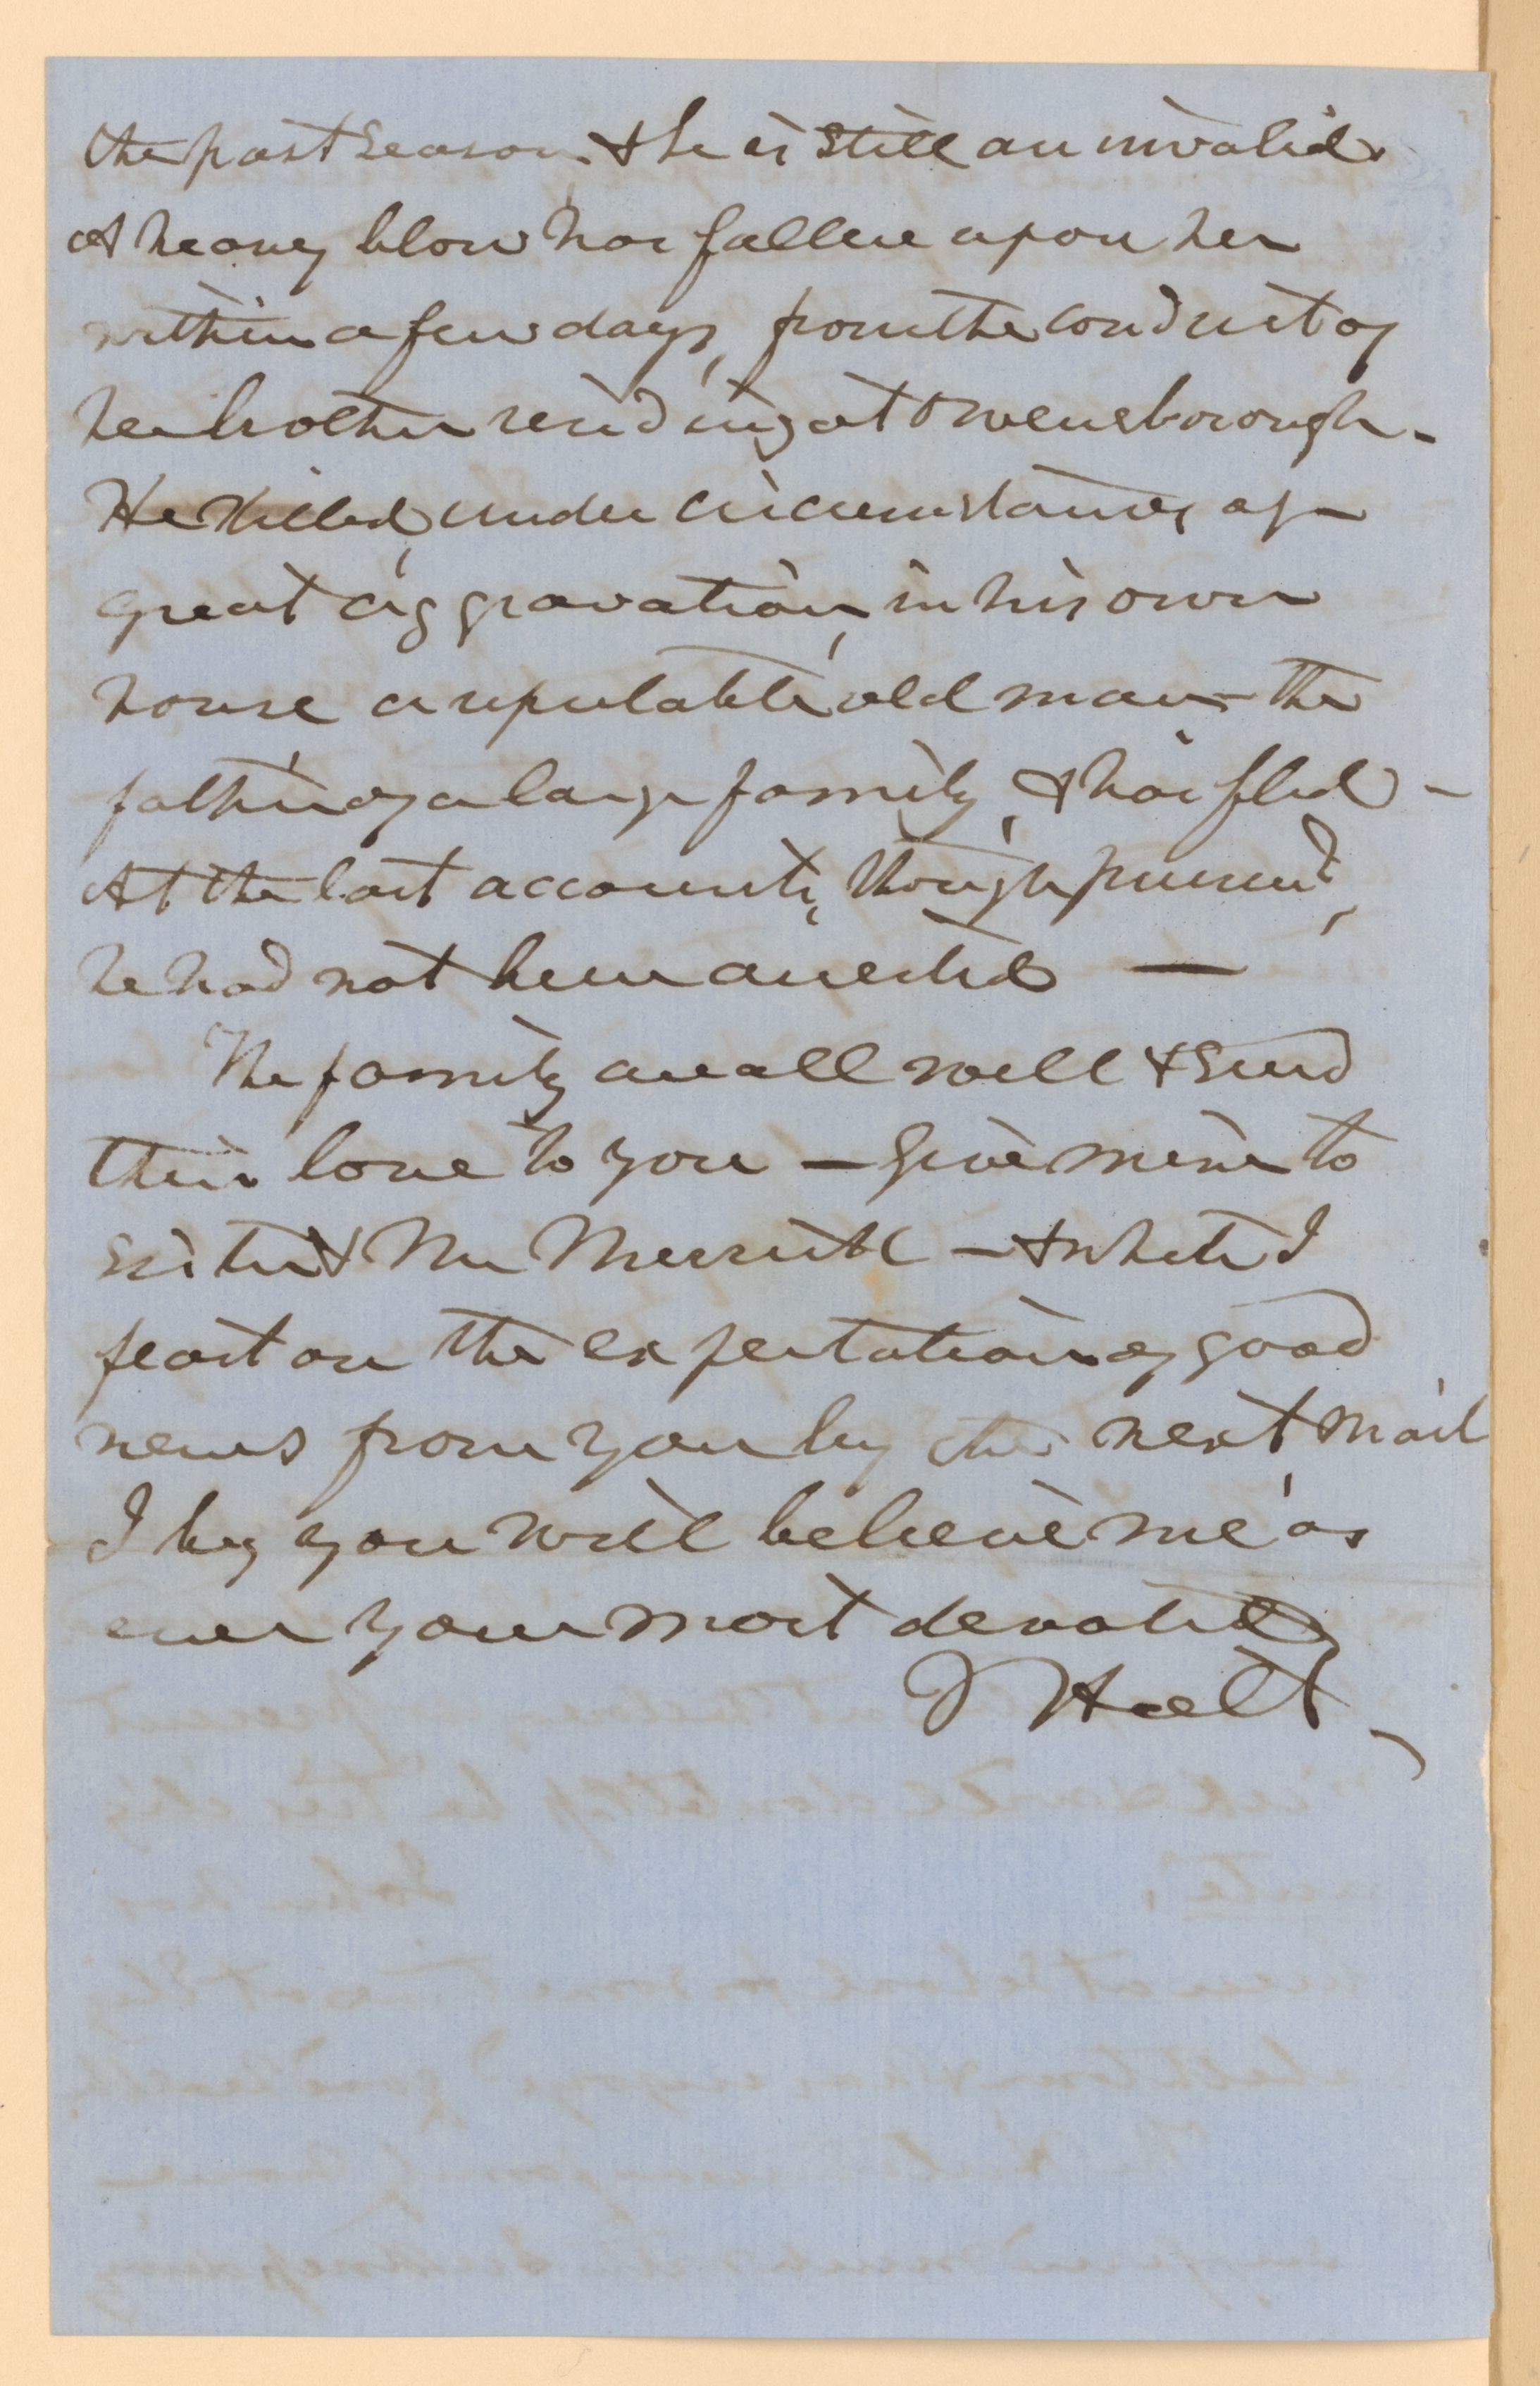 the past season & she is still an invalid.
A heavy blow has fallen upon her
within a few days, from the conduct of
her brother residing at Owensborough.
He killed, under circumstances of
great aggravation, in his own
house a reputable old man - the
father of a large family, & has fled -
At the last accounts, though pursued,
he had not been arrested —
The family are all well & send
their love to you — Give mine to
sister & Mr Merrick — & while I
feast on the expectation of good
news from you by the next mail
I beg you will believe me as
ever your most devoted
J Holt